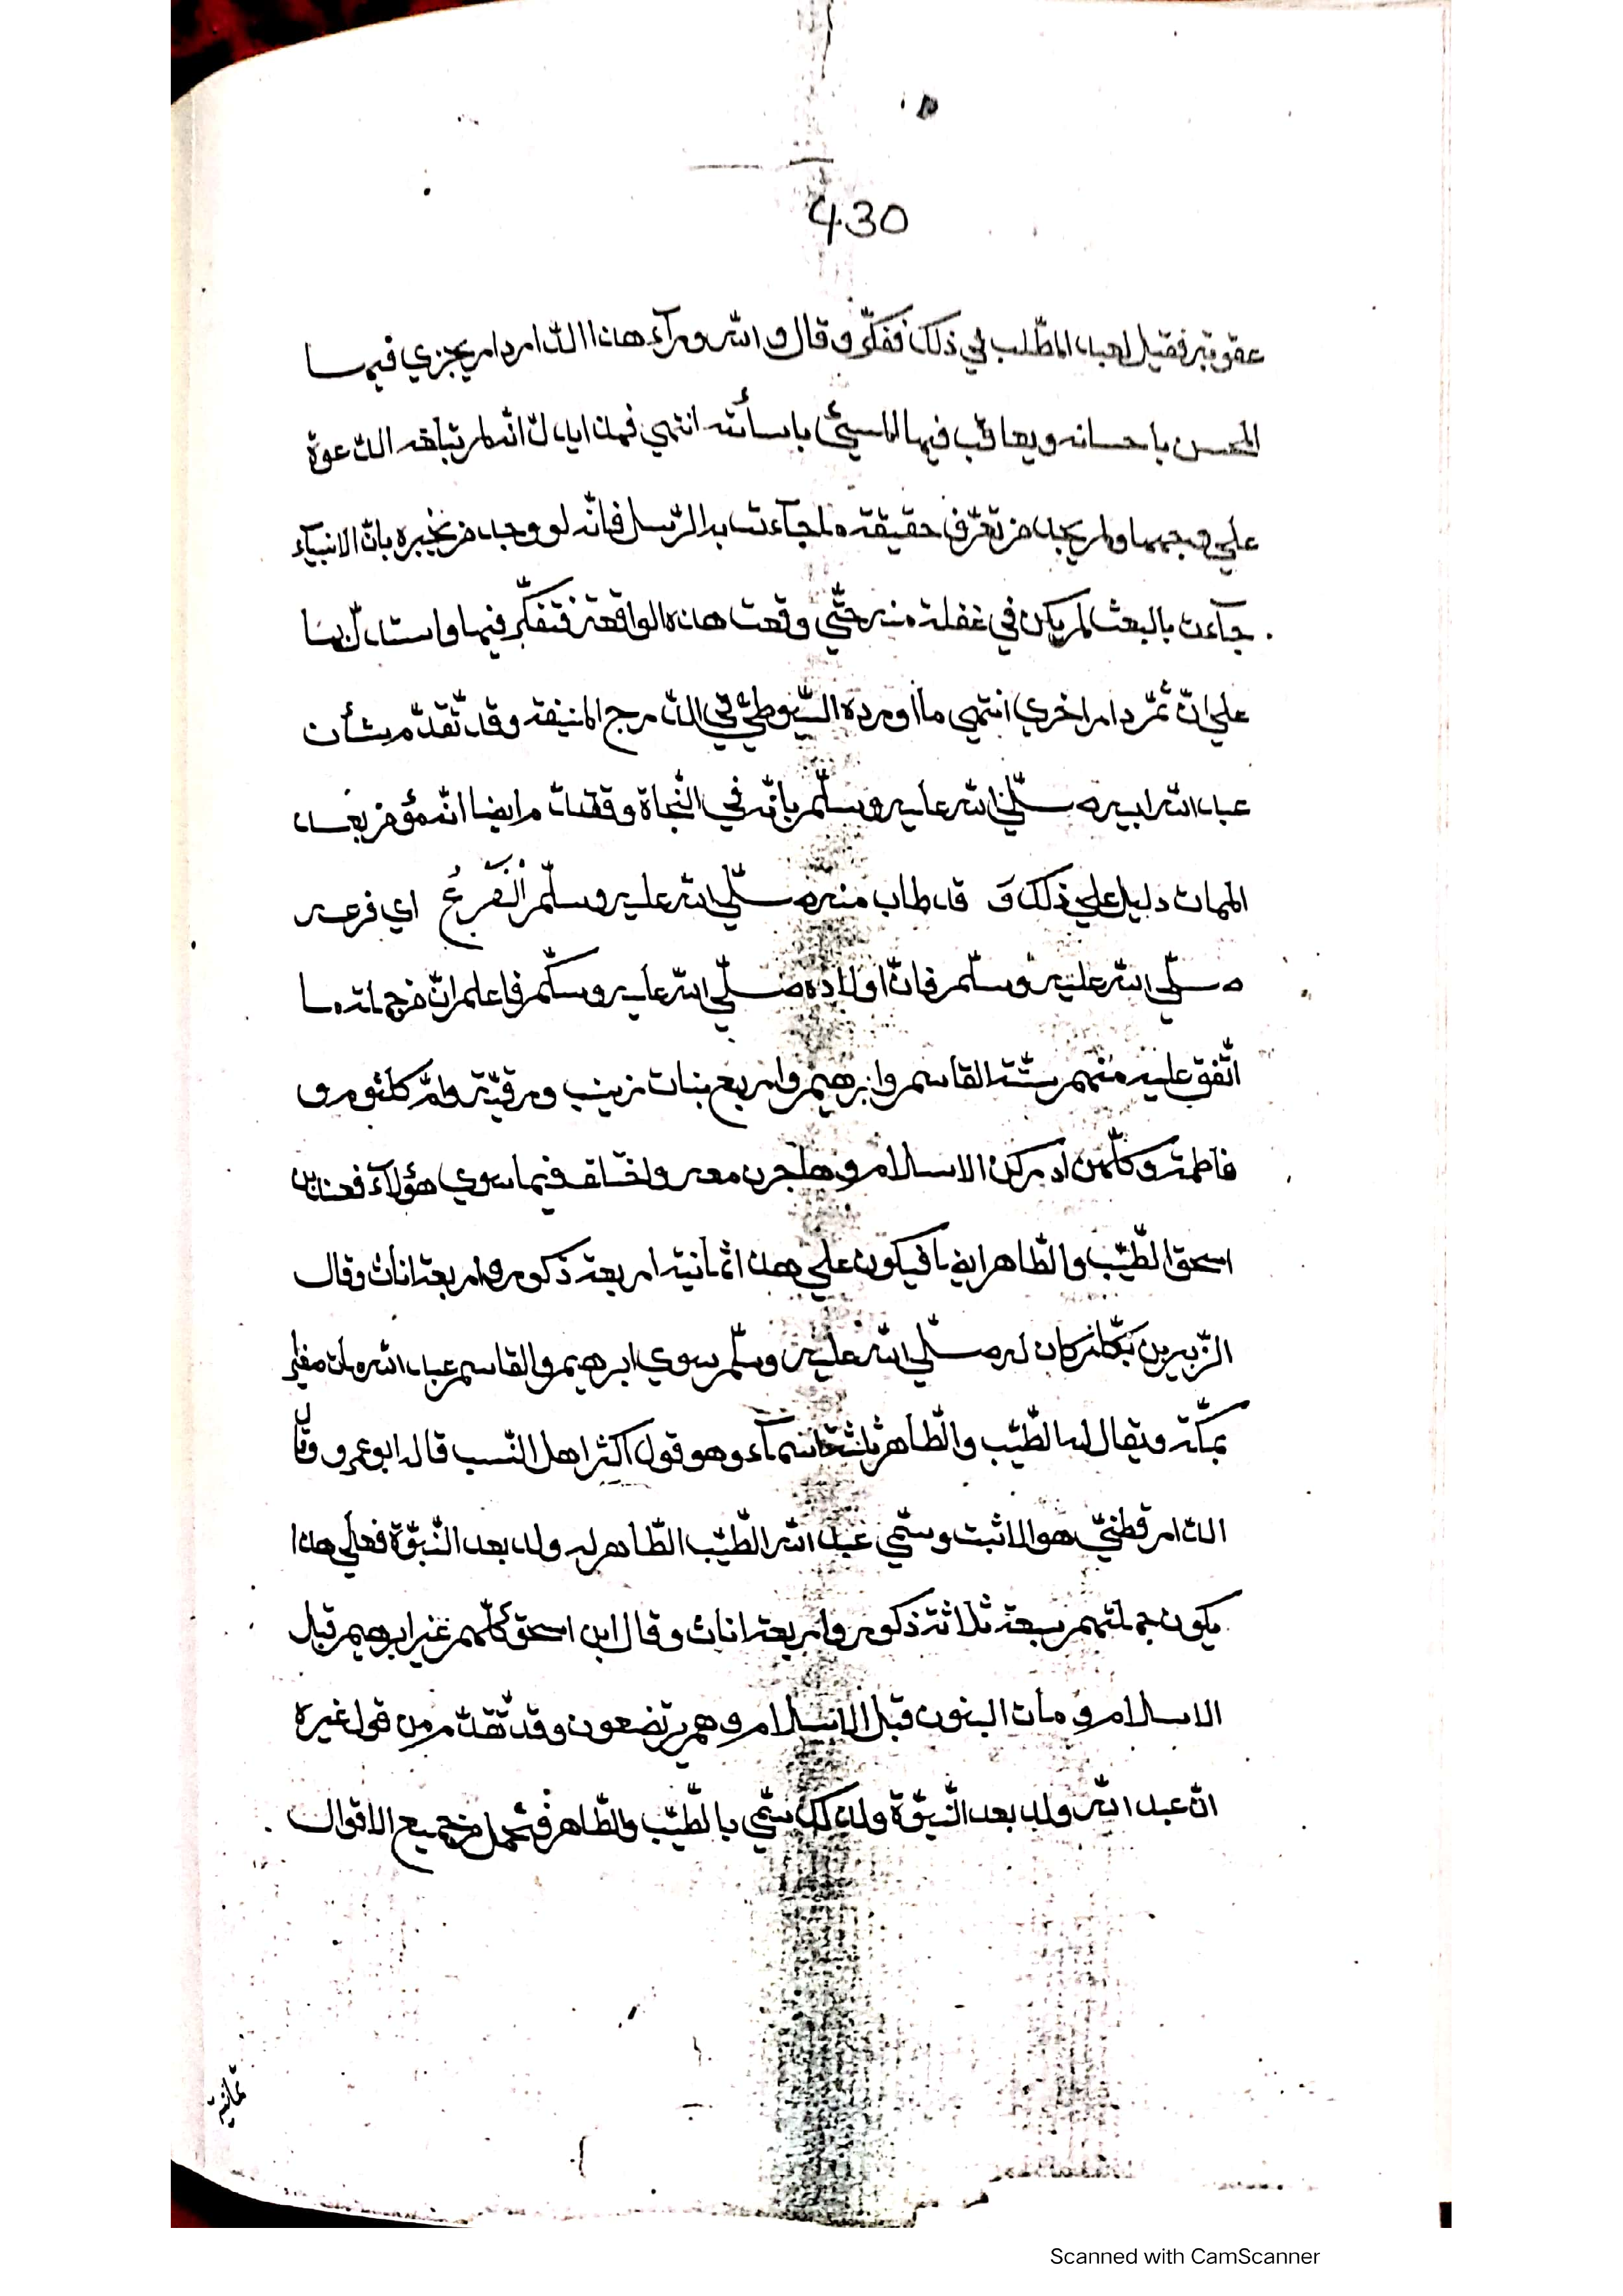 430
عقوبته فقيل لعبد المطّلب في ذلك ففكّر و قال و الله ورآء هذا الدّار دار يجزي فيها
المحسن باحسانه ويعاقب فيها المسيئ باسأته انتهي فهذا يدلّ انّه لم تبلغه الدّعوة
علي وجهها ولم يجد من تعرّف حقيقة ما جآءت به الرّسل فانّه لو وجد من يخبره بانّ الانبيآء
جآءت بالبعث لم يكن في غفلة منه حتّي وقعت هذه الواقعة فتفكّر فيها واستدلّ بها
علي انّ ثمّ دارا اخري انتهي ما اورده السّيوطيّ في الدّرج المنيفة وقد تقدّم بشأن
عبد الله ابيه صلّي الله عليه وسلّم بانّه في النّجاة وقد تقدّم ايضا انّه مؤمن بعد
الممات دليل علي ذلك وَ قد طاب منه صلّي الله عليه وسلّم الْفَرْعُ اي فرعه
صلّي الله عليه وسلّم فانّ اولاده صلّي الله عليه وسلّم فاعلم انّ من جملة ما
اتّفق عليه منهم ستّة القاسم وابرهيم واربع بنات زينب ورقيّة وامّ كلثوم و
فاطمة وكلّهن ادركن الاسلام وهاجرن معه واختلف فيما سوي هؤلآء فعند ابن
اسحق الطّيّب والطّاهر ايضا فيكون علي هذا ثمانية اربعة ذكور واربعة اناث وقال
الزّبير بن بكّار كان له صلّي الله عليه وسلّم سوي ابرهيم والقاسم عبد الله مات صغيرا
بمكّة ويقال له الطّيّب والطّاهر ثلثة اسمآء وهو قول اكثر اهل النّسب قاله ابو عمرو وقال
الدّارقطنيّ هو الاثبت وسمّي عبد الله الطّيّب الطّاهر لانه ولد بعد النّبوّة فعلي هذا
يكون جملتهم سبعة ثلاثة ذكور واربعة اناث وقال ابن اسحق كلّهم غير ابرهيم قبل
الاسلام و مات البنون قبل الاسلام وهم يرتضعون وقد تقدّم من قول غيره
انّ عبد الله ولد بعد النّبوّة ولذلك سمّي بالطّيّب والطّاهر فتحصل من جميع الاقوال
ثمانية
Scanned with CamScanner